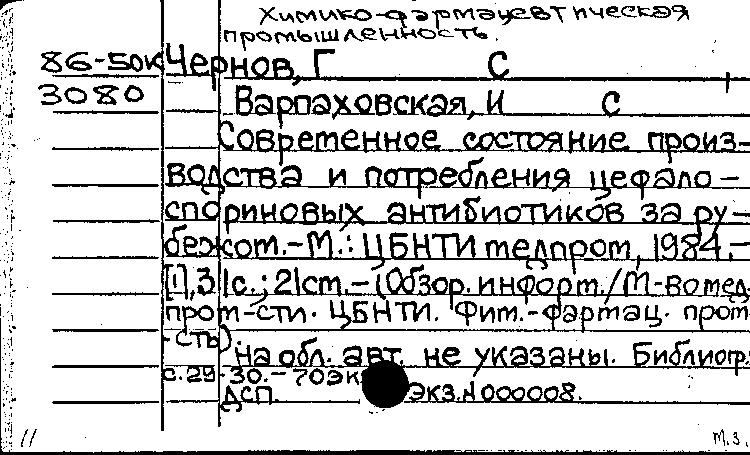 Химико-фармацевтическая
промышленность.
86-50к Чернов, Г С
3080 Варпаховская, И С
Современное состояние произ-
водства и потребления цефало-
спориновых антибиотиков за ру-
бежом.-М.: ЦБНТИ медпром, 1984.-
[1], 31с.; 21см.-(Обзор. информ./М-во мед.
пром-сти. ЦБНТИ. Хим.-фармац. пром
-сть).
На обл. авт. не указаны. Библиогр.:
с.29-30.-70экз
ДСП. Экз.N000008.
11 м.з.